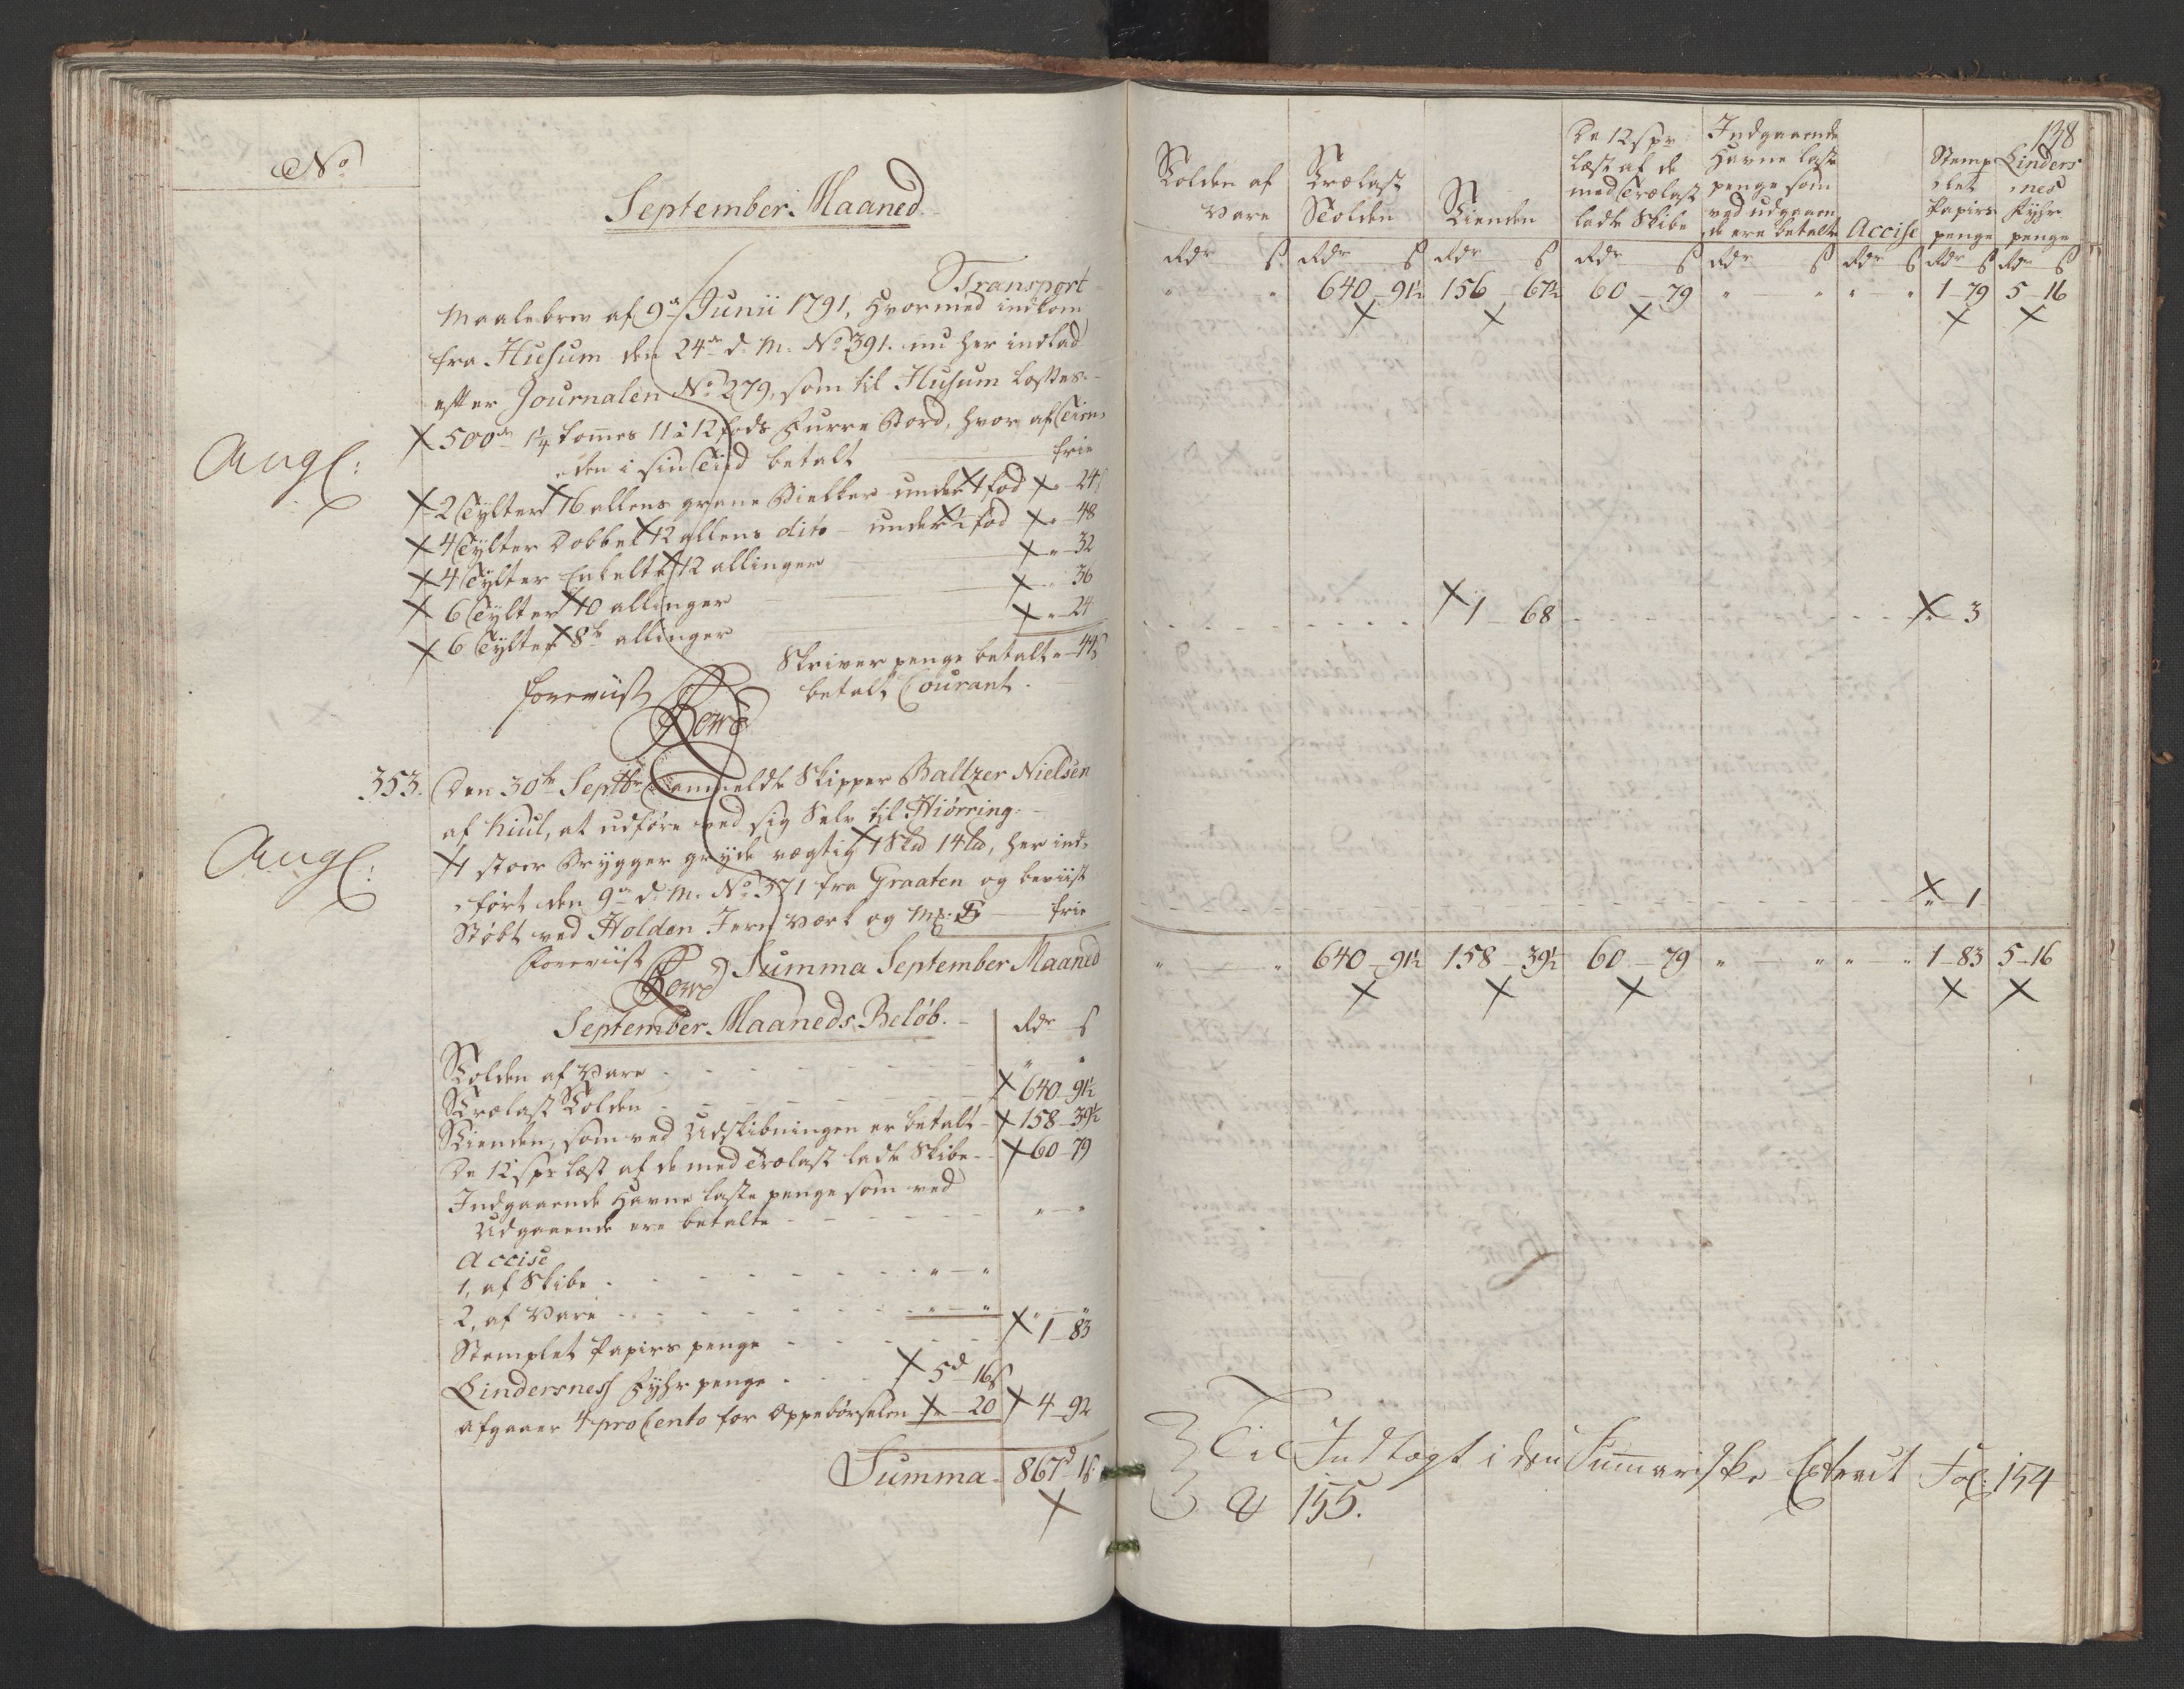 No
September Maaned
Transport
Maalebrev af 9de Junii 1791, hvormed indkom
fra Husum den 24de d. M. No 391. nu her indlad
efter Journalen No 279, som til Husum lostes.
Angl: 500de 1¼ tommes 11 à 12 fods Furre Bord, hvor af Tien-
den i sin Tiid betalt frie
2 Tylter 16 allens grane Bielker under 1 fod " 24
4 Tylter Dobbelt 12 allens dito under 1 fod " 48
4 Tylter Enkelte 12 allinger " 32
6 Tylter 10 allinger " 36
6 Tylter 8te allinger " 24
Skriver penge betalt " 44ß
betalt Courant.
foreviist
353. Den 30te Septbr anmeldte Skipper Baltzer Nielsen
af Kiul, at udføre med sig Selv til Hiørring
Angl: 1 stoer Brygger gryde vægtig 1 Skd 14 Ld, her ind-
ført den 9de d. M. No 371 fra Graaten og beviist
Støbt ved Holden Jern Værk og Mk. frie
foreviist
Summa September Maaned
September Maaneds Beløb. Rdr ß
Tolden af Vare " "
Trælast Tolden 640 91½
Tienden, som ved Udskibningen er betalt 158 39½
De 12 spr Læst af de med Trælast ladte Skibe 60 79
Indgaaende Havne laste penge som ved
Udgaaende ere betalte " "
Accise
1, af Skibe " "
2, af Vare " " " "
Stemplet Papirs penge 1 83
Lindersness Fyhr penge 5d 16ß
Afgaaer 4 pro Cento for Oppebørselen " 20 4 92
Summa 867d 1ß
138
Tolden af Vare | Trælast Tolden | Tienden | De 12 spr læst af de med Trælast ladte Skibe | Indgaaende Havne laste penge som ved udgaaende ere betalte | Accise | Stemplet Papirs penge | Lindersnes Fyhr penge
Rdr ß Rdr ß Rdr ß Rdr ß Rdr ß Rdr ß Rdr ß Rdr ß
" " 640 91½ 156 67½ 60 79 " " " " 1 79 5 16
1 68 " 3
" 1
" " 640 91½ 158 39½ 60 79 " " " " 1 83 5 16
Er Indtagt i den Sum̄ariske Extract Fol: 154
& 155.